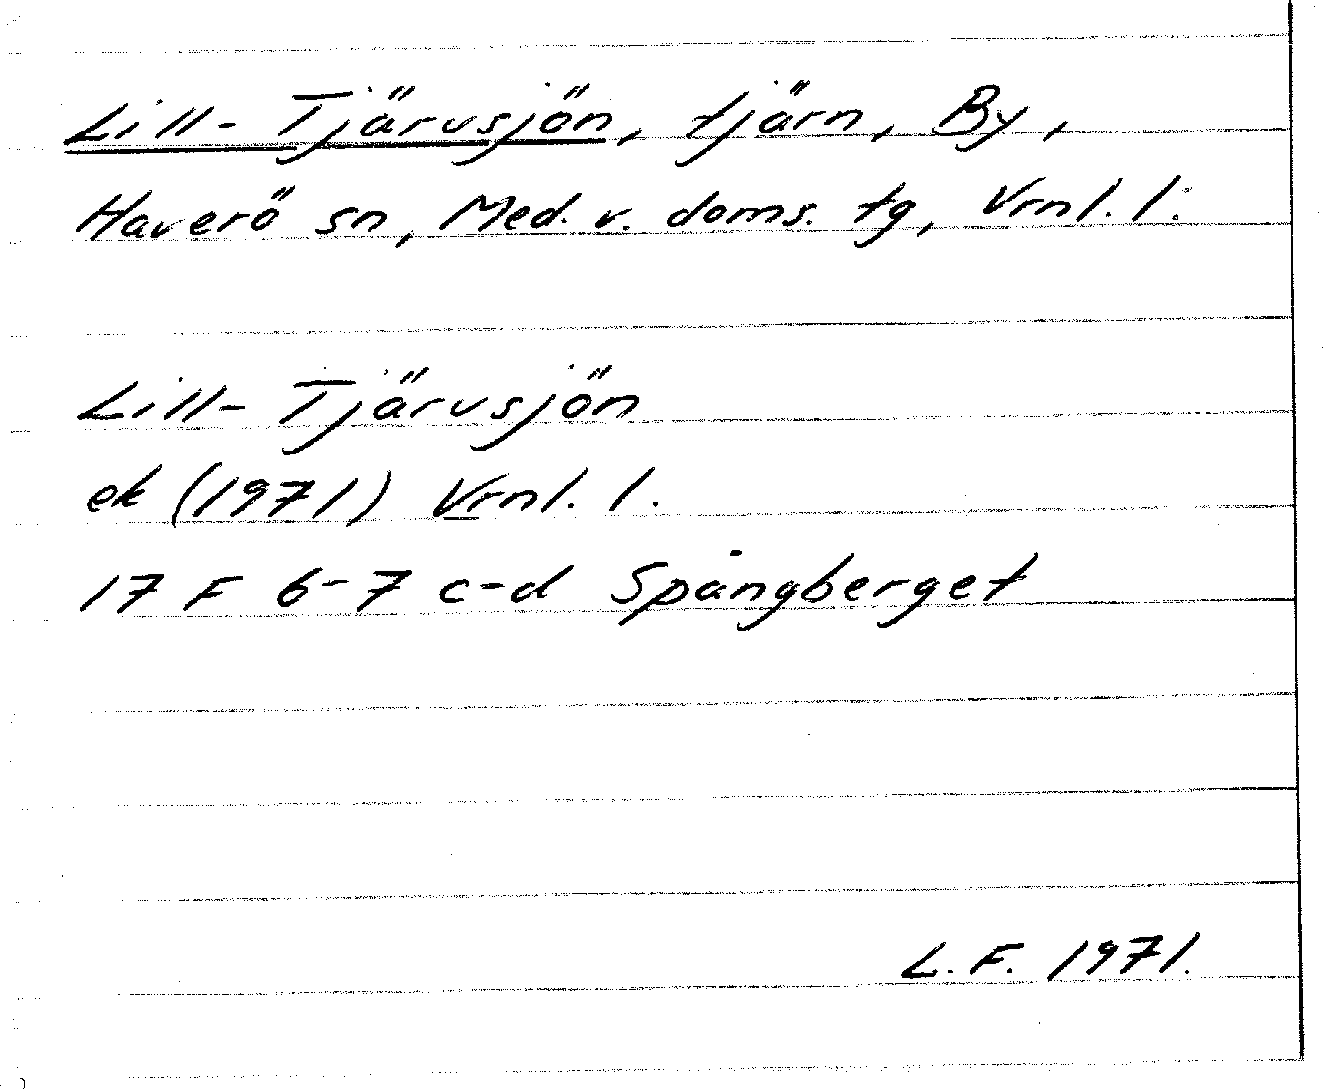 Lill-Tjärusjön, tjärn, By,
Haverö sn, Med. v. doms. tg, Vrnl. l.
Lill-Tjärusjön
ek (1971) Vrnl. l.
17 F 6-7 c-d Spångberget
L.F. 1971.